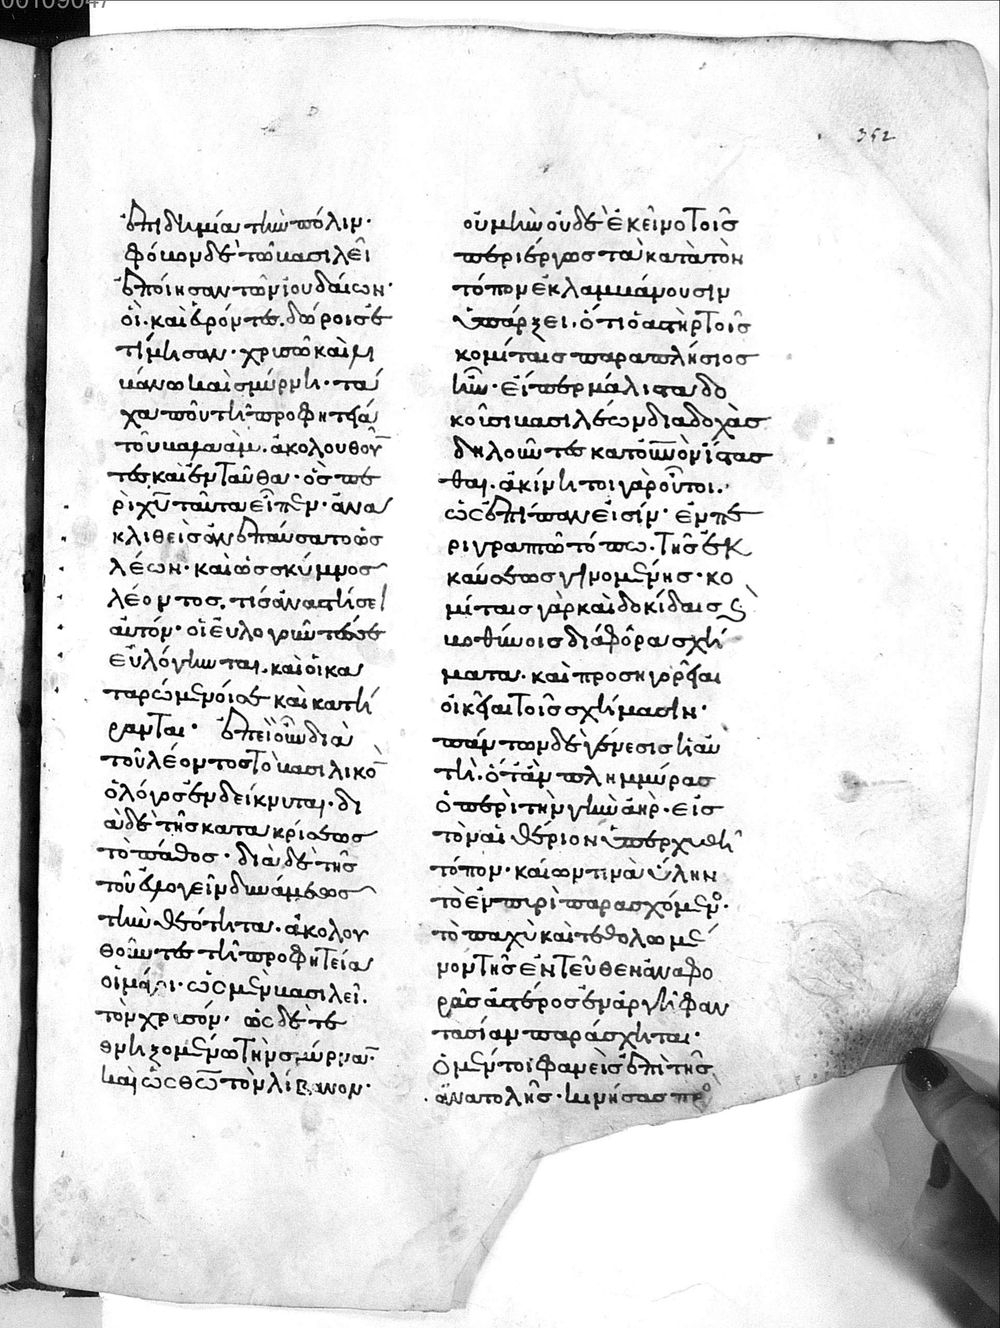 00109047
352
ἐπιδημία τὴν πόλιν·
φόνον δὲ τῶ βασιλεῖ
ἐποίησαν τῶν ἰουδαίων·
οἱ καὶ εὑρόντες, δώροις ἐ
τίμησαν· χρυσῶ καὶ λι
βάνω καὶ σμύρνη· τά
χα που τῆ προφητεία
τοῦ βαλαὰμ ἀκολουθοῦ
τες καὶ ἐνταῦθα· ὃς πε
ρὶ χυ ταῦτα εἶπεν· ἀνα
κλιθεὶς ἀνεπαύσατο ὡς
λέων· καὶ ὡς σκύμνος
λέοντος, τίς ἀναστήσει
αὐτόν· οἱ εὐλογοῦντές σε
εὐλόγηνται, καὶ οἱ κα
ταρώμενοί σε κεκατή
ρανται· ἐπεὶ οὖν διὰ
τοῦ λέοντος τὸ βασιλικὸ
ὁ λόγος ἐνδείκνυται· δι
ὰ δὲ τῆς κατακρίσεως
τὸ πάθος· διὰ δὲ τῆς
τοῦ εὐλογεῖν δυνάμεως
τὴν θεότητα· ἀκολου
θοῦντες τῆ προφητεία
οἱ μάγοι· ὡς μὲν βασιλεῖ
τὸν χρυσόν· ὡς δὲ τε
θνηξομένω τὴν σμύρναν·
καὶ ὡς θω τὸν λίβανον·
οὐ μὴν οὐδὲ ἐκεῖνο τοῖς
περιέργως τὰ κατὰ τὸν
τόπον ἐκλαμβάνουσιν
ὑπάρξει· ὅτι ὁ ἀστὴρ τοῖς
κομίταις παραπλήσιος
ἦν· εἴπερ μάλιστα δο
κοῦσι βασιλέων διαδοχὰς
δηλοῦντες κατ οὐνὸν ἵστας
θαι· ἀκίνητοι γὰρ οὗτοι
ὡς ἐπίπαν εἰσίν· ἐμπε
ριγράπτω τόπω· τῆς ἐκ
καύσεως γινομένης· κο
μίταις γὰρ καὶ δοκίδαις ϗ
βοθύνοις διάφορα σχή
ματα· καὶ προσηγορίαι
οἰκεῖαι τοῖς σχήμασιν·
πάντων δὲ γένεσις ἡ αὐ
τή· ὅτ ἂν πλημμύρας
ὁ περὶ τὴν γῆν ἀὴρ· εἰς
τὸν αἰθέριον ὑπερχυθῆ
τόπον· καί οντινα ὕλην
τὸ ἐν πυρὶ παρασχόμενος·
τὸ παχὺ καὶ τεθολωμέ
νον τῆς ἐντεῦθεν ἀναφο
ρᾶς ἀστέρος ἐναργῆ φαν
τασίαν παράσχηται·
ὁ μέντοι φανεὶς ἐπὶ τῆς
ἀνατολῆς· κινήσας πρὸ